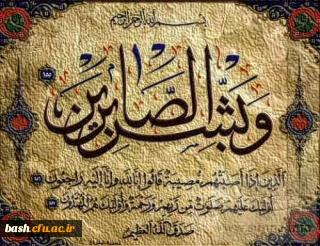 بسم الله الرحمن الرحيم
وبشر الصابرين
الذين اذا اصابتهم مصيبة قالوا انا لله وانا اليه راجعون
اولئك عليهم صلوات من ربهم ورحمة واولئك هم المهتدون
صدق الله العظيم
bash.cfu.ac.ir